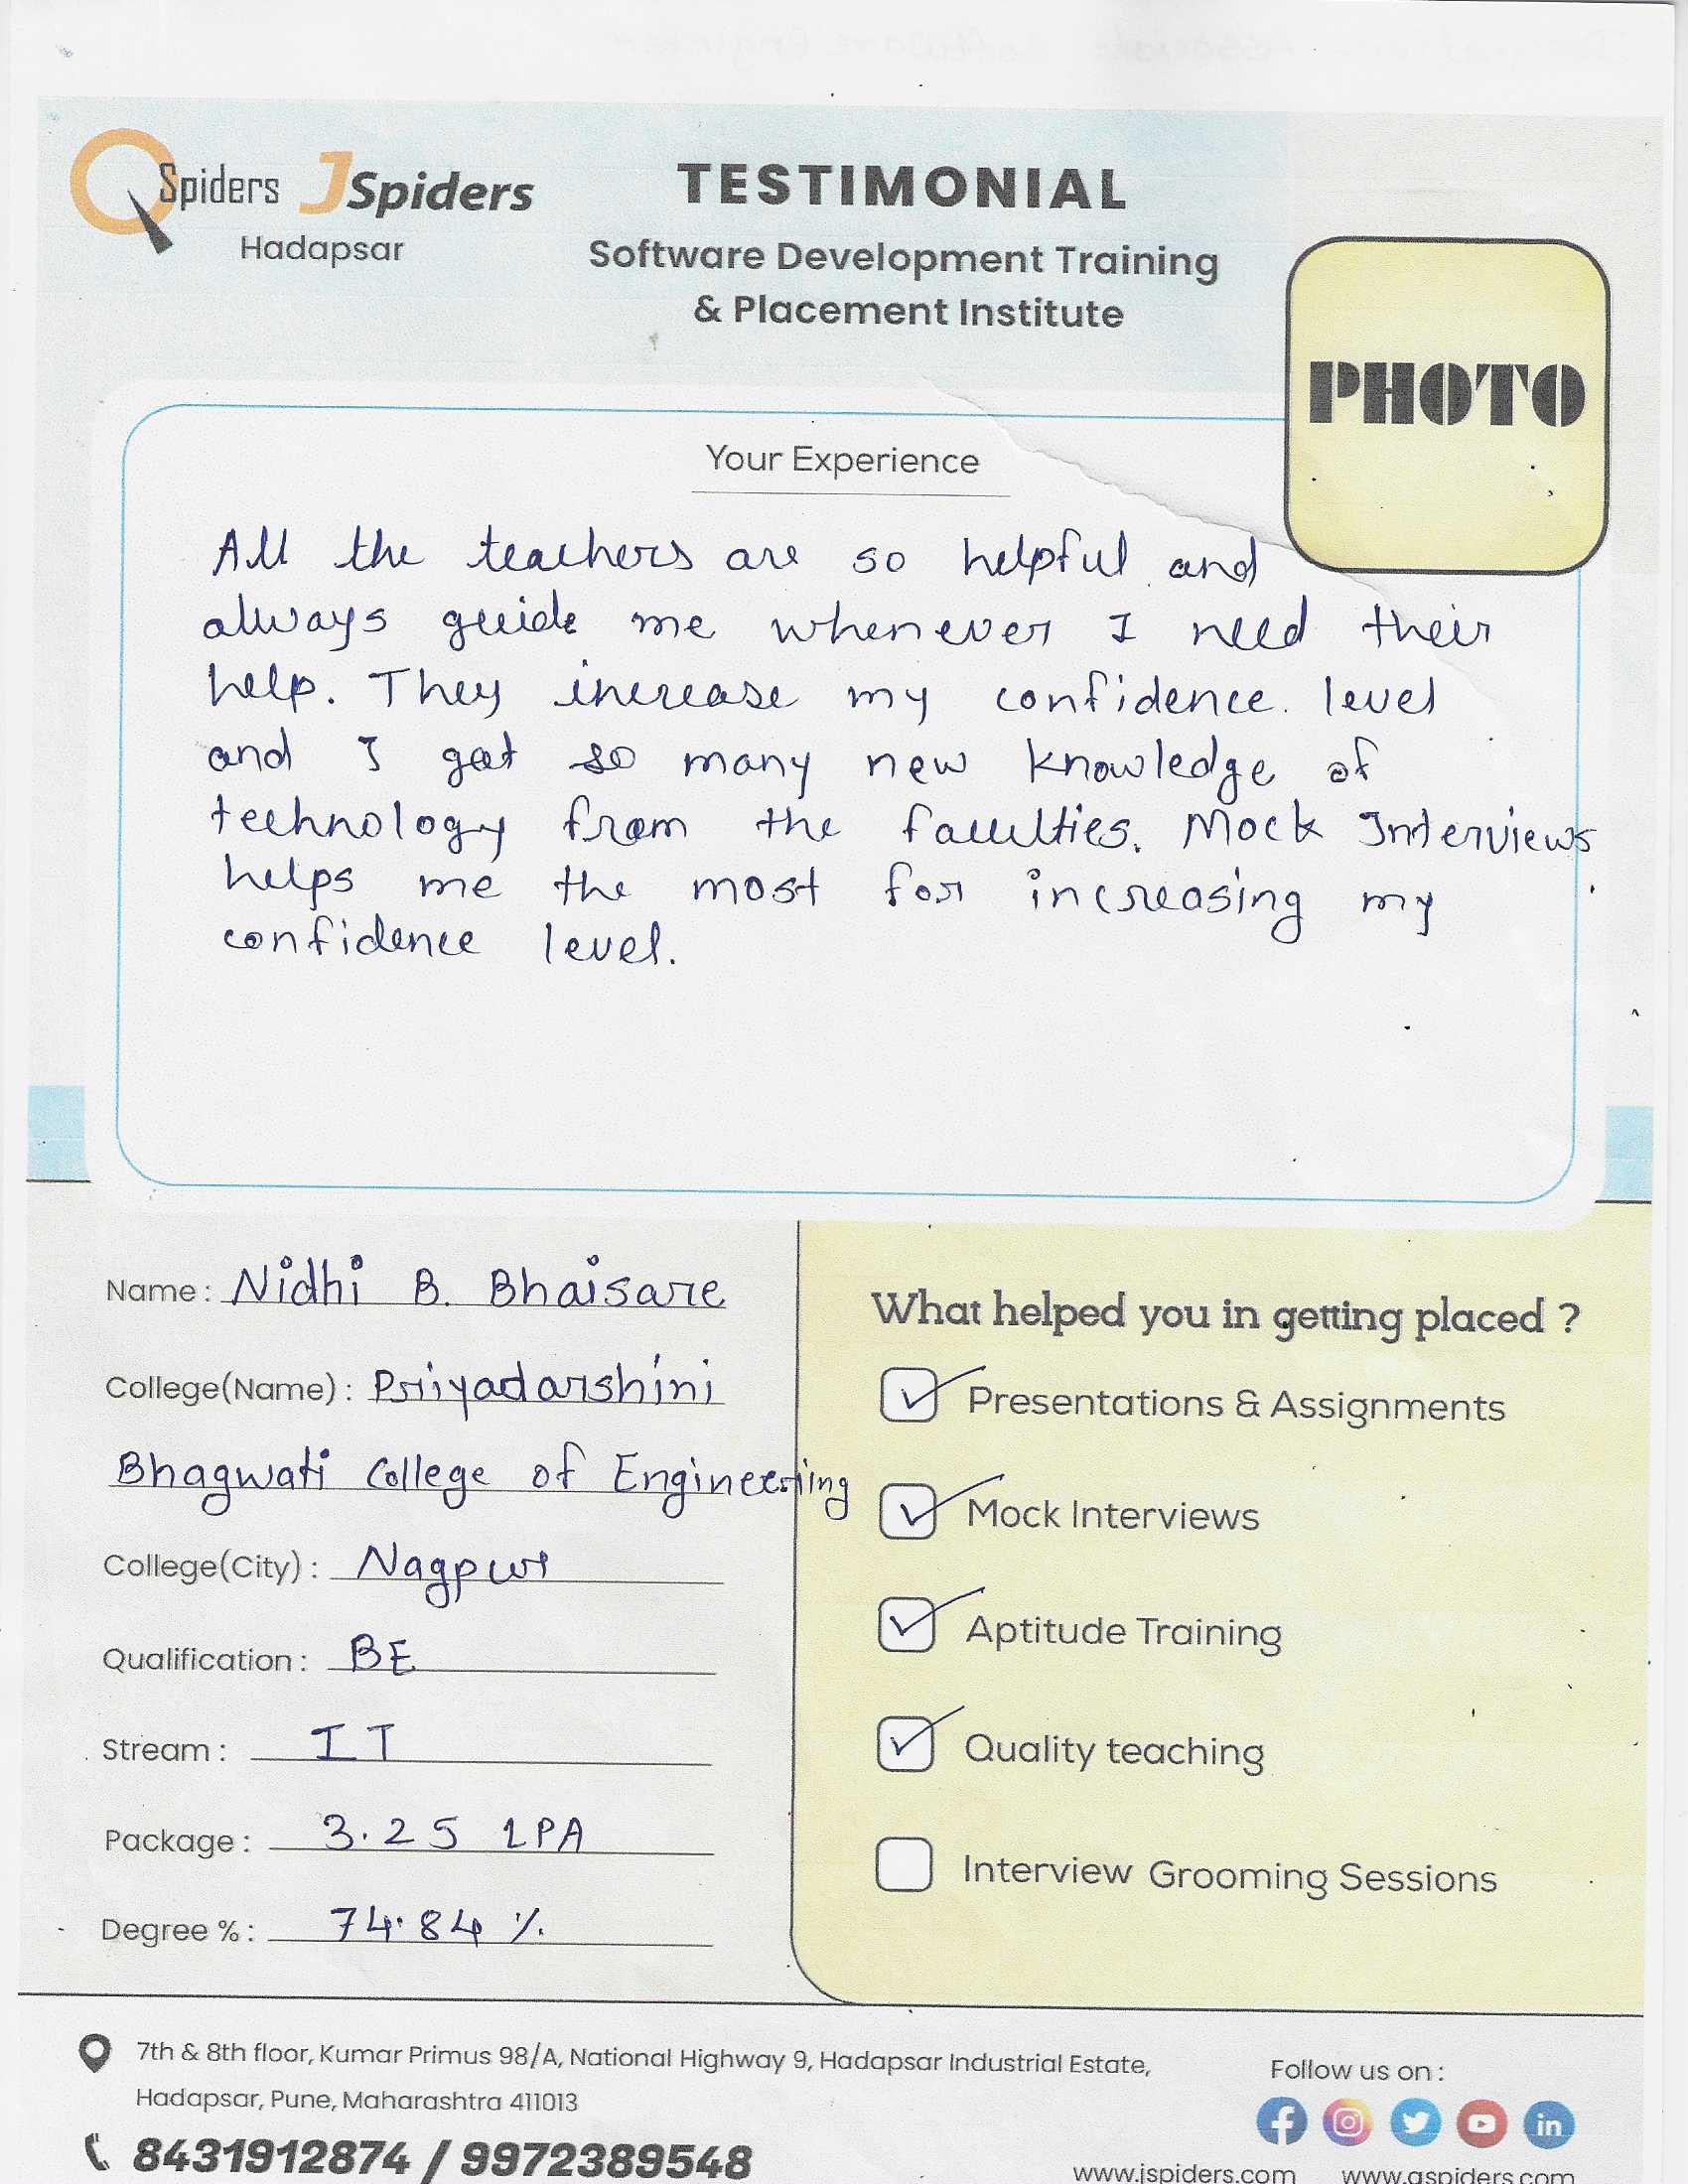 QSpiders JSpiders
Hadapsar
TESTIMONIAL
Software Development Training
& Placement Institute
PHOTO
Your Experience
All the teachers are so helpful and
always guide me whenever I need their
help. They increase my confidence level
and I get so many new knowledge of
technology from the faculties. Mock Interviews
helps me the most for increasing my
confidence level.
Name : Nidhi B. Bhaisare
College(Name) : Priyadarshini
Bhagwati College of Engineering
College(City) : Nagpur
Qualification : BE
Stream : IT
Package : 3.25 LPA
Degree % : 74.84 %
What helped you in getting placed ?
Presentations & Assignments
Mock Interviews
Aptitude Training
Quality teaching
Interview Grooming Sessions
7th & 8th floor, Kumar Primus 98/A, National Highway 9, Hadapsar Industrial Estate,
Hadapsar, Pune, Maharashtra 411013
8431912874 / 9972389548
Follow us on :
www.jspiders.com www.qspiders.com